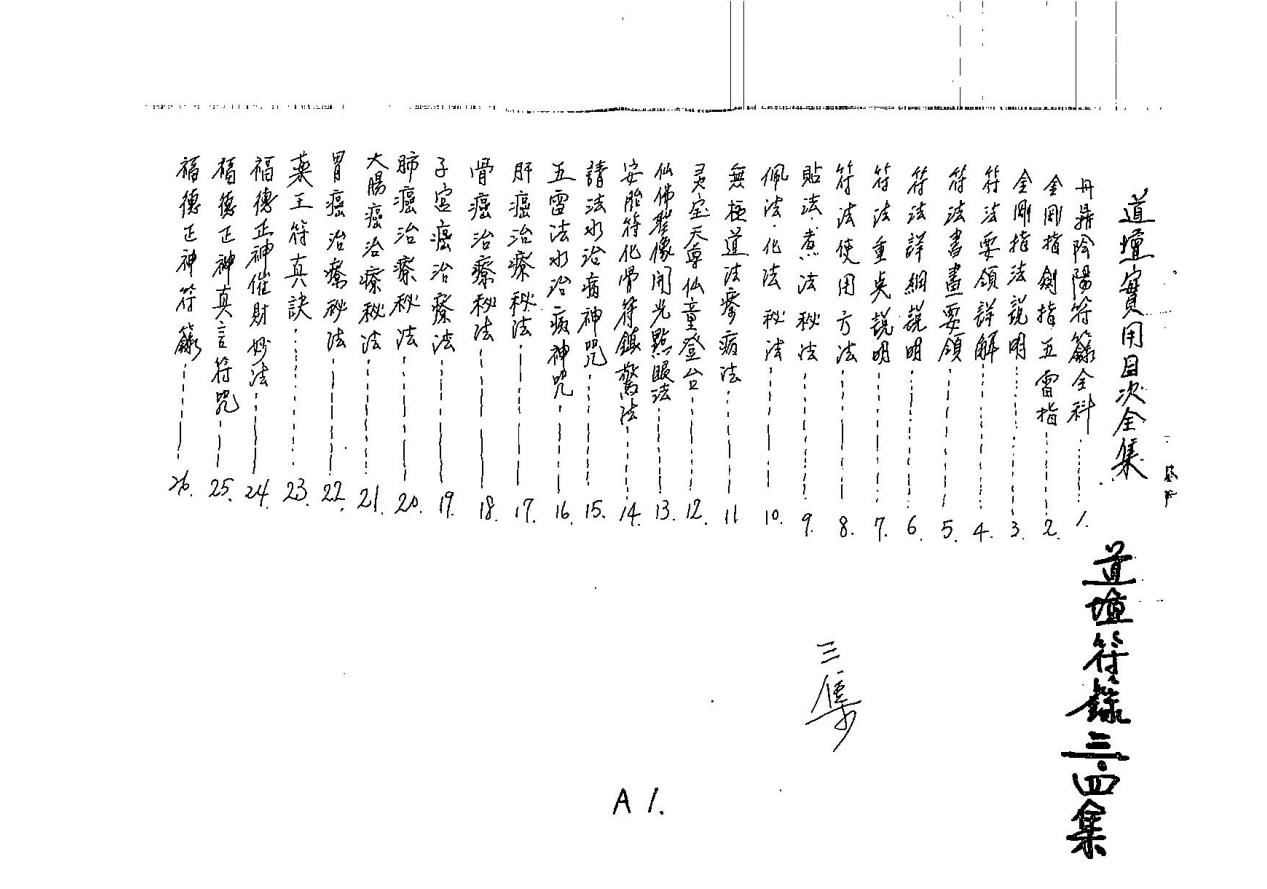 道壇實用目次全集
丹鼎陰陽符籙全科 1.
金剛指劍指五雷指 2.
金剛指法說明 3.
符法要領詳解 4.
符法書畫要領 5.
符法詳細說明 6.
符法重点說明 7.
符法使用方法 8.
貼法.煮法秘法 9.
佩法.化法秘法 10.
無極道法療病法 11
灵宝天尊仙童登台 12
仙佛聖像開光點眼法 13.
安胎符化骨符鎮驚法 14.
請法水治病神咒 15.
五雷法水治病神咒 16.
肝癌治療秘法 17.
骨癌治療秘法 18.
子宮癌治療法 19.
肺癌治療秘法 20.
大腸癌治療秘法 21.
胃癌治療秘法 22.
藥王符真訣 23.
福德正神催財妙法 24.
福德正神真言符咒 25.
福德正神符籙 26.
道壇符籙三.四集
三集
A1.